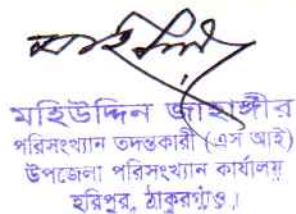 মহিউদ্দিন জাহাঙ্গীর
পরিসংখ্যান তদন্তকারী (এস আই)
উপজেলা পরিসংখ্যান কার্যালয়
হরিপুর, ঠাকুরগাঁও।